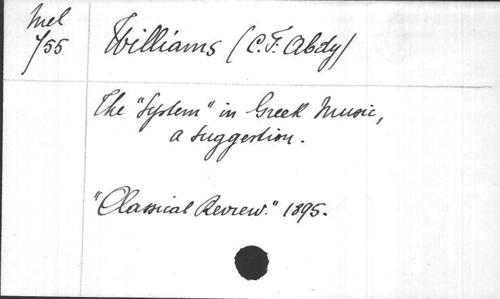 Mel
/55
Williams (C.F. Abdy)
The "System" in Greek Music,
a suggestion.
"Classical Review." 1895.